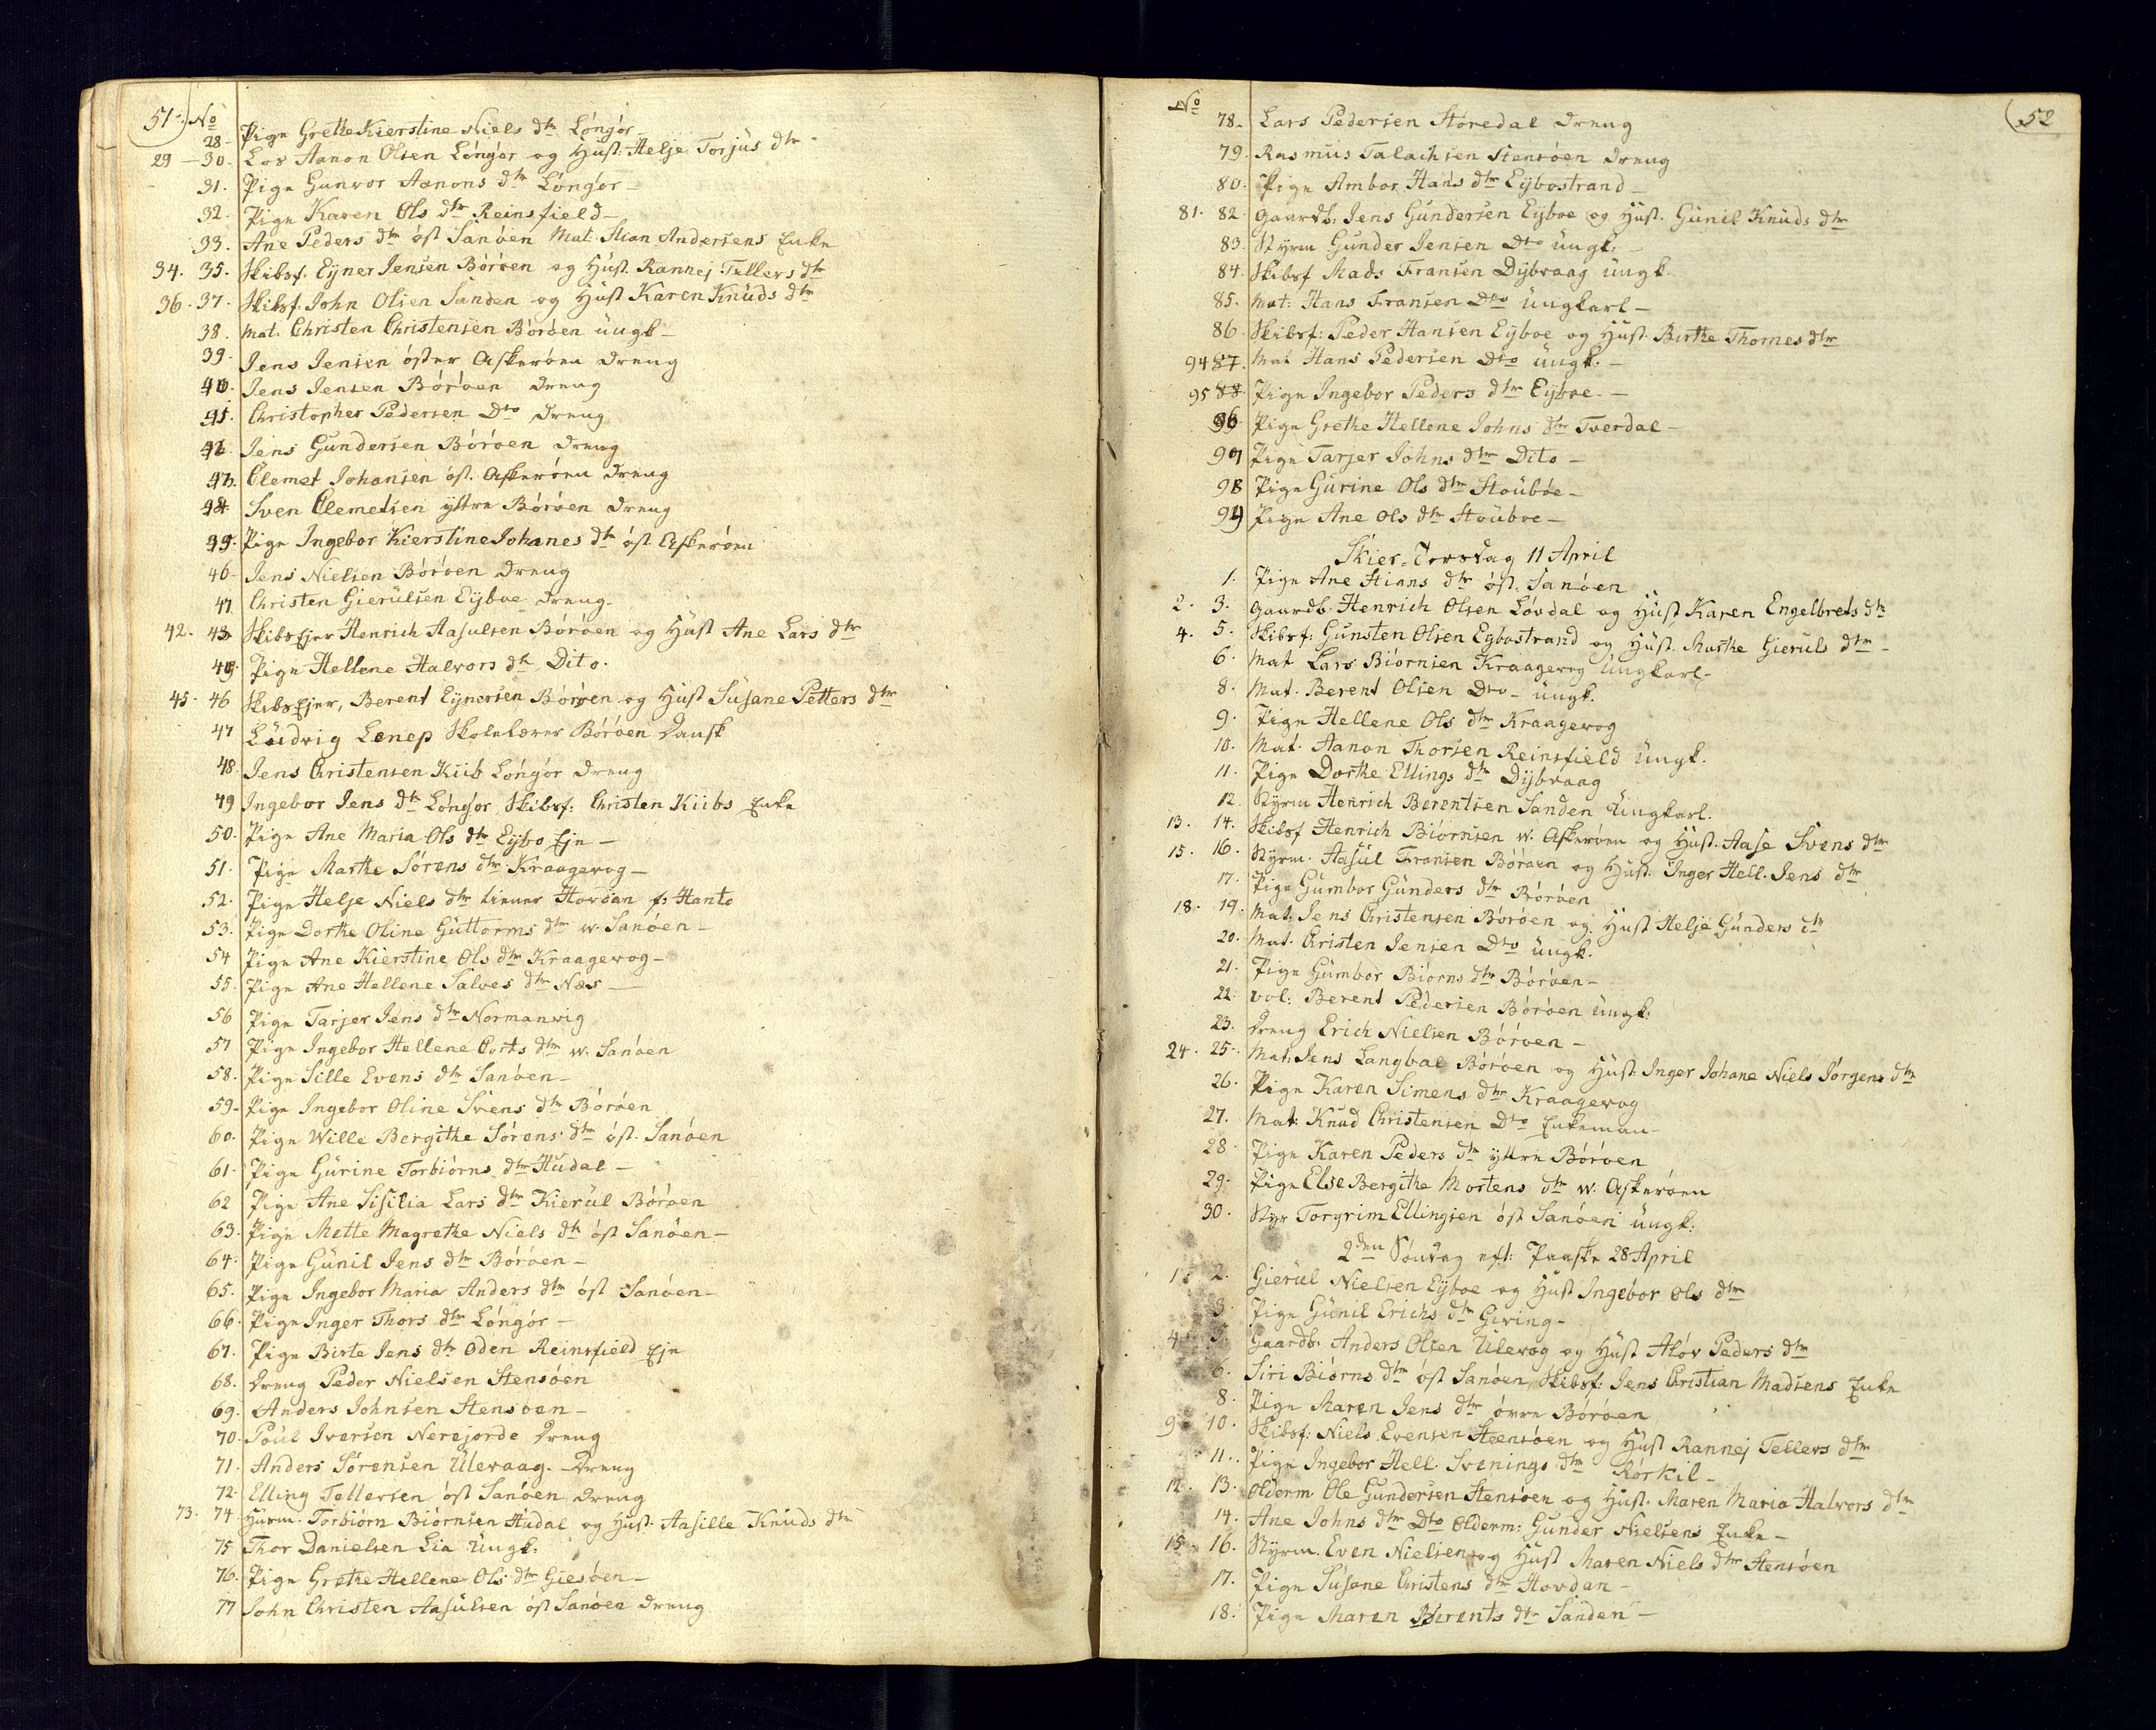 51. No
28. Pige Grethe Kierstine Niels dtr Löngör
29 - 30. Los Aanon Olsen Löngör og Hust: Helje Torjus dtr
31. Pige Gunvor Aanons dtr Löngör
32. Pige Karen Ols dtr Reinsfield
33. Ane Peders dtr öst Sanöen Mat. Stian Andersens Enke
34. 35. Skibsf. Eyner Jensen Böröen og Hust. Rannej Tellers dtr
36. 37. Skibsf. John Olsen Sanden og Hust Karen Knuds dtr
38. Mat. Christen Christensen Böröen ungk
39. Jens Jensen öster Askeröen Dreng
40. Jens Jensen Böröen Dreng
41. Christopher Pedersen Dto Dreng
42. Jens Gundersen Böröen Dreng
43. Clemet Johansen öst. Askeröen Dreng
44. Sven Clemetsen yttre Böröen Dreng
45. Pige Ingebor Kierstine Johanes dtr öst Askeröen
46. Jens Nielsen Böröen Dreng
41 Christen Gierulsen Eyboe Dreng
42. 43 Skibsejer Henrich Aasulsen Böröen og Hust Ane Lars dtr
44. Pige Hellene Halvors dtr Dito.
45. 46 Skibsejer, Berent Eynersen Böröen og Hust Susane Petters dtr
47 Ludvig Lenep Skolelærer Böröen Dansk
48. Jens Christensen Kiib Löngör Dreng
49 Ingebor Jens dtr Löngör Skibsf: Christen Kiibs Enke
50. Pige Ane Maria Ols dtr Eybo Eje
51. Pige Marthe Sörens dtr Kraagevog
52. Pige Helje Niels dtr tiener Hovdan f: Hanto
53. Pige Dorthe Oline Guttorms dtr w. Sanöen
54 Pige Ane Kierstine Ols dtr Kraagevog
55. Pige Ane Hellene Salves dtr Næs
56 Pige Tarjer Jens dtr Normanvig
57 Pige Ingebor Hellene Corts dtr w. Sanöen
58. Pige Sille Evens dtr Sanöen
59. Pige Ingebor Oline Svens dtr Böröen
60. Pige Wille Bergithe Sörens dtr öst. Sanöen
61. Pige Gurine Torbiörns dtr Hudal
62 Pige Ane Sisilia Lars dtr Kierul Böröen
63. Pige Mette Magrethe Niels dtr öst Sanöen
64. Pige Gunil Jens dtr Böröen
65. Pige Ingebor Maria Anders dtr öst Sanöen
66. Pige Inger Thors dtr Löngör
67. Pige Birte Jens dtr Oden Reinsfield Eje
68. Dreng Peder Nielsen Stensöen
69. Anders Johnsen Stensöen
70. Poul Iversen Nerejorde Dreng
71. Anders Sörensen Ulevaag. Dreng
72. Elling Tellersen öst Sanöen Dreng
73. 74 Huusm. Torbiörn Biörnsen Hudal og Hust. Aasille Knuds dtr
75 Thor Danielsen Lia Ungk.
76. Pige Grethe Hellene Ols dtr Giesöen
77 John Christen Aasulsen öst Sanöen Dreng
No 52
78. Lars Pedersen Störedal Dreng
79. Rasmus Talachsen Stensöen Dreng
80. Pige Ambor Hans dtr Eybostrand
81. 82. Gaardb: Jens Gundersen Eyboe og Hust. Gunil Knuds dtr
83. Styrm Gunder Jensen Dto ungk:
84. Skibsf Mads Fransen Dybvaag ungk
85. Mat: Hans Fransen Dto Ungkarl
86. Skibsf: Peder Hansen Eyboe og Hust. Birthe Thomes dtr
94 87. Mat Hans Pedersen Dto ungk.
95 88. Pige Ingebor Peders dtr Eyboe.
96 Pige Grethe Hellene Johns dtr Tverdal
97 Pige Tarjer Johns dtr Dito
98 Pige Gurine Ols dtr Stouböe
99 Pige Ane Ols dtr Stouboe
Skier-Torsdag 11 April
1. Pige Ane Stians dtr öst. Sanöen
2. 3. Gaardb. Henrich Olsen Lövdal og Hust Karen Engelbrets dtr
4. 5. Skibsf: Gunsten Olsen Eybostrand og Hust. Marthe Gieruls dtr
6. Mat Lars Biörnsen Kraagevog Ungkarl
8. Mat. Berent Olsen Dto ungk.
9. Pige Hellene Ols dtr Kraagevog
10. Mat. Aanon Thorsen Reinsfield Ungk.
11. Pige Dorthe Ellings dtr Dybvaag
12. Styrm Henrich Berentsen Sanden Ungkarl.
13. 14. Skibsf Henrich Biörnsen w. Askeröen og Hust. Aase Svens dtr
15. 16. Styrm. Aasul Fransen Böröen og Hust. Inger Hell. Jens dtr
17. Pige Gumbor Gunders dtr Böröen
18. 19. Mat: Jens Christensen Böröen og Hust Helje Gunders dtr
20. Mat. Christen Jensen Dto ungk.
21. Pige Gumbor Biörns dtr Böröen
22. vol: Berent Pedersen Böröen ungk:
23. Dreng Erich Nielsen Böröen
24. 25. Mat: Jens Langbal Böröen og Hust. Inger Johane Niels Jörgens dtr
26. Pige Karen Simens dtr Kraagevog
27. Mat: Knud Christensen Dto Enkeman
28. Pige Karen Peders dtr yttre Böröen
29. Pige Else Bergithe Mortens dtr w. Askeröen
30. Styr Torgrim Ellingsen öst Sanöen ungk:
2den Söndag eft: Paaske 28 April
1. 2. Gierul Nielsen Eyboe og Hust Ingebor Ols dtr
3 Pige Gunil Erichs dtr Giving
4. 5. Gaardb: Anders Olsen Ulevog og Hust Alöv Peders dtr
6. Siri Biörns dtr öst Sanöen, Skibsf: Jens Christian Madsens Enke
8. Pige Maren Jens dtr övre Böröen
9 10. Skibsf: Niels Evensen Steensöen og Hust Rannej Tellers dtr
11. Pige Ingebor Hell. Svenings dtr Rörkil
12. 13. Olderm Ole Gundersen Stensöen og Hust. Maren Maria Halvors dtr
14. Ane Johns dtr Dto Olderm: Gunder Nielsens Enke
15 16. Styrm. Even Nielsen og Hust Maren Niels dtr Stensöen
17. Pige Susane Christens dtr Hovdan
18. Pige Maren Berents dtr Sanden